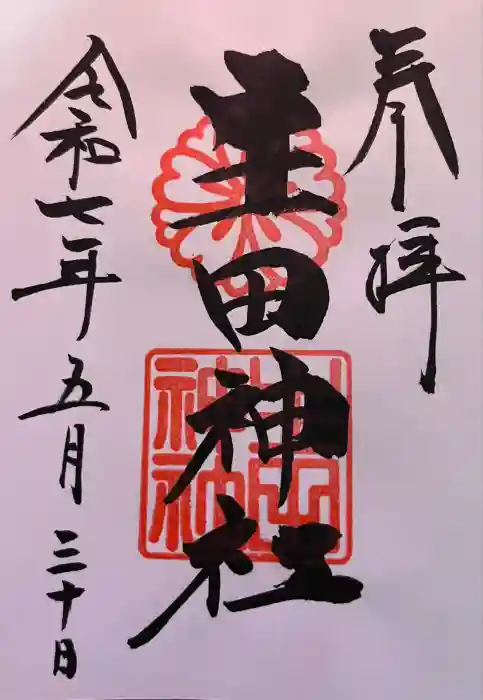 奉拝
生田神社
令和七年五月三十日
生田
神社